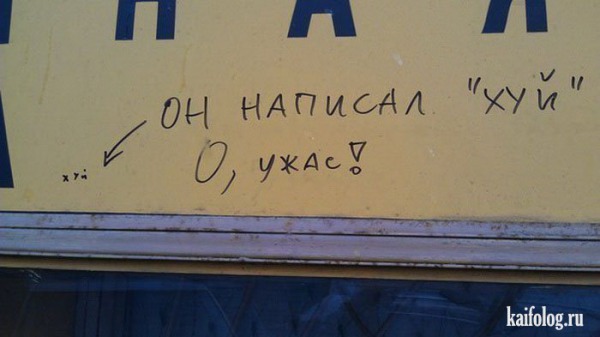 НАЯ
ОН НАПИСАЛ "ХУЙ"
О, УЖАС!
хуй
kaifolog.ru